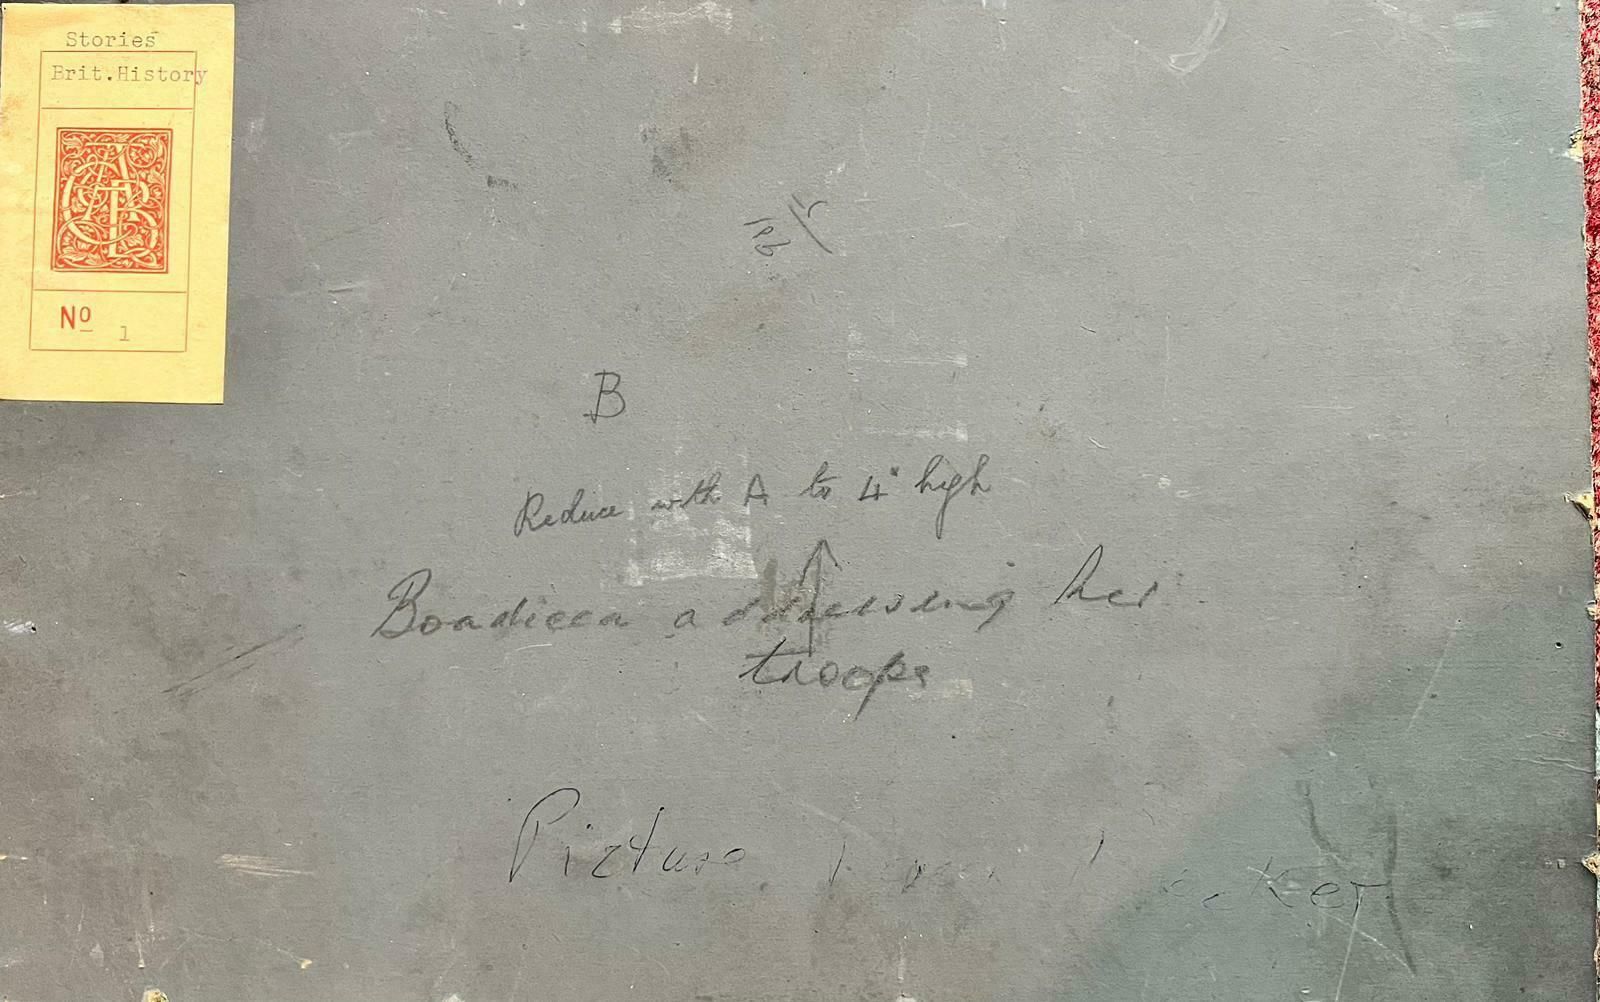 Stories
Brit.History
No 1
B
Reduce with A to 4" high
Boadicea addressing her
troops
Picture